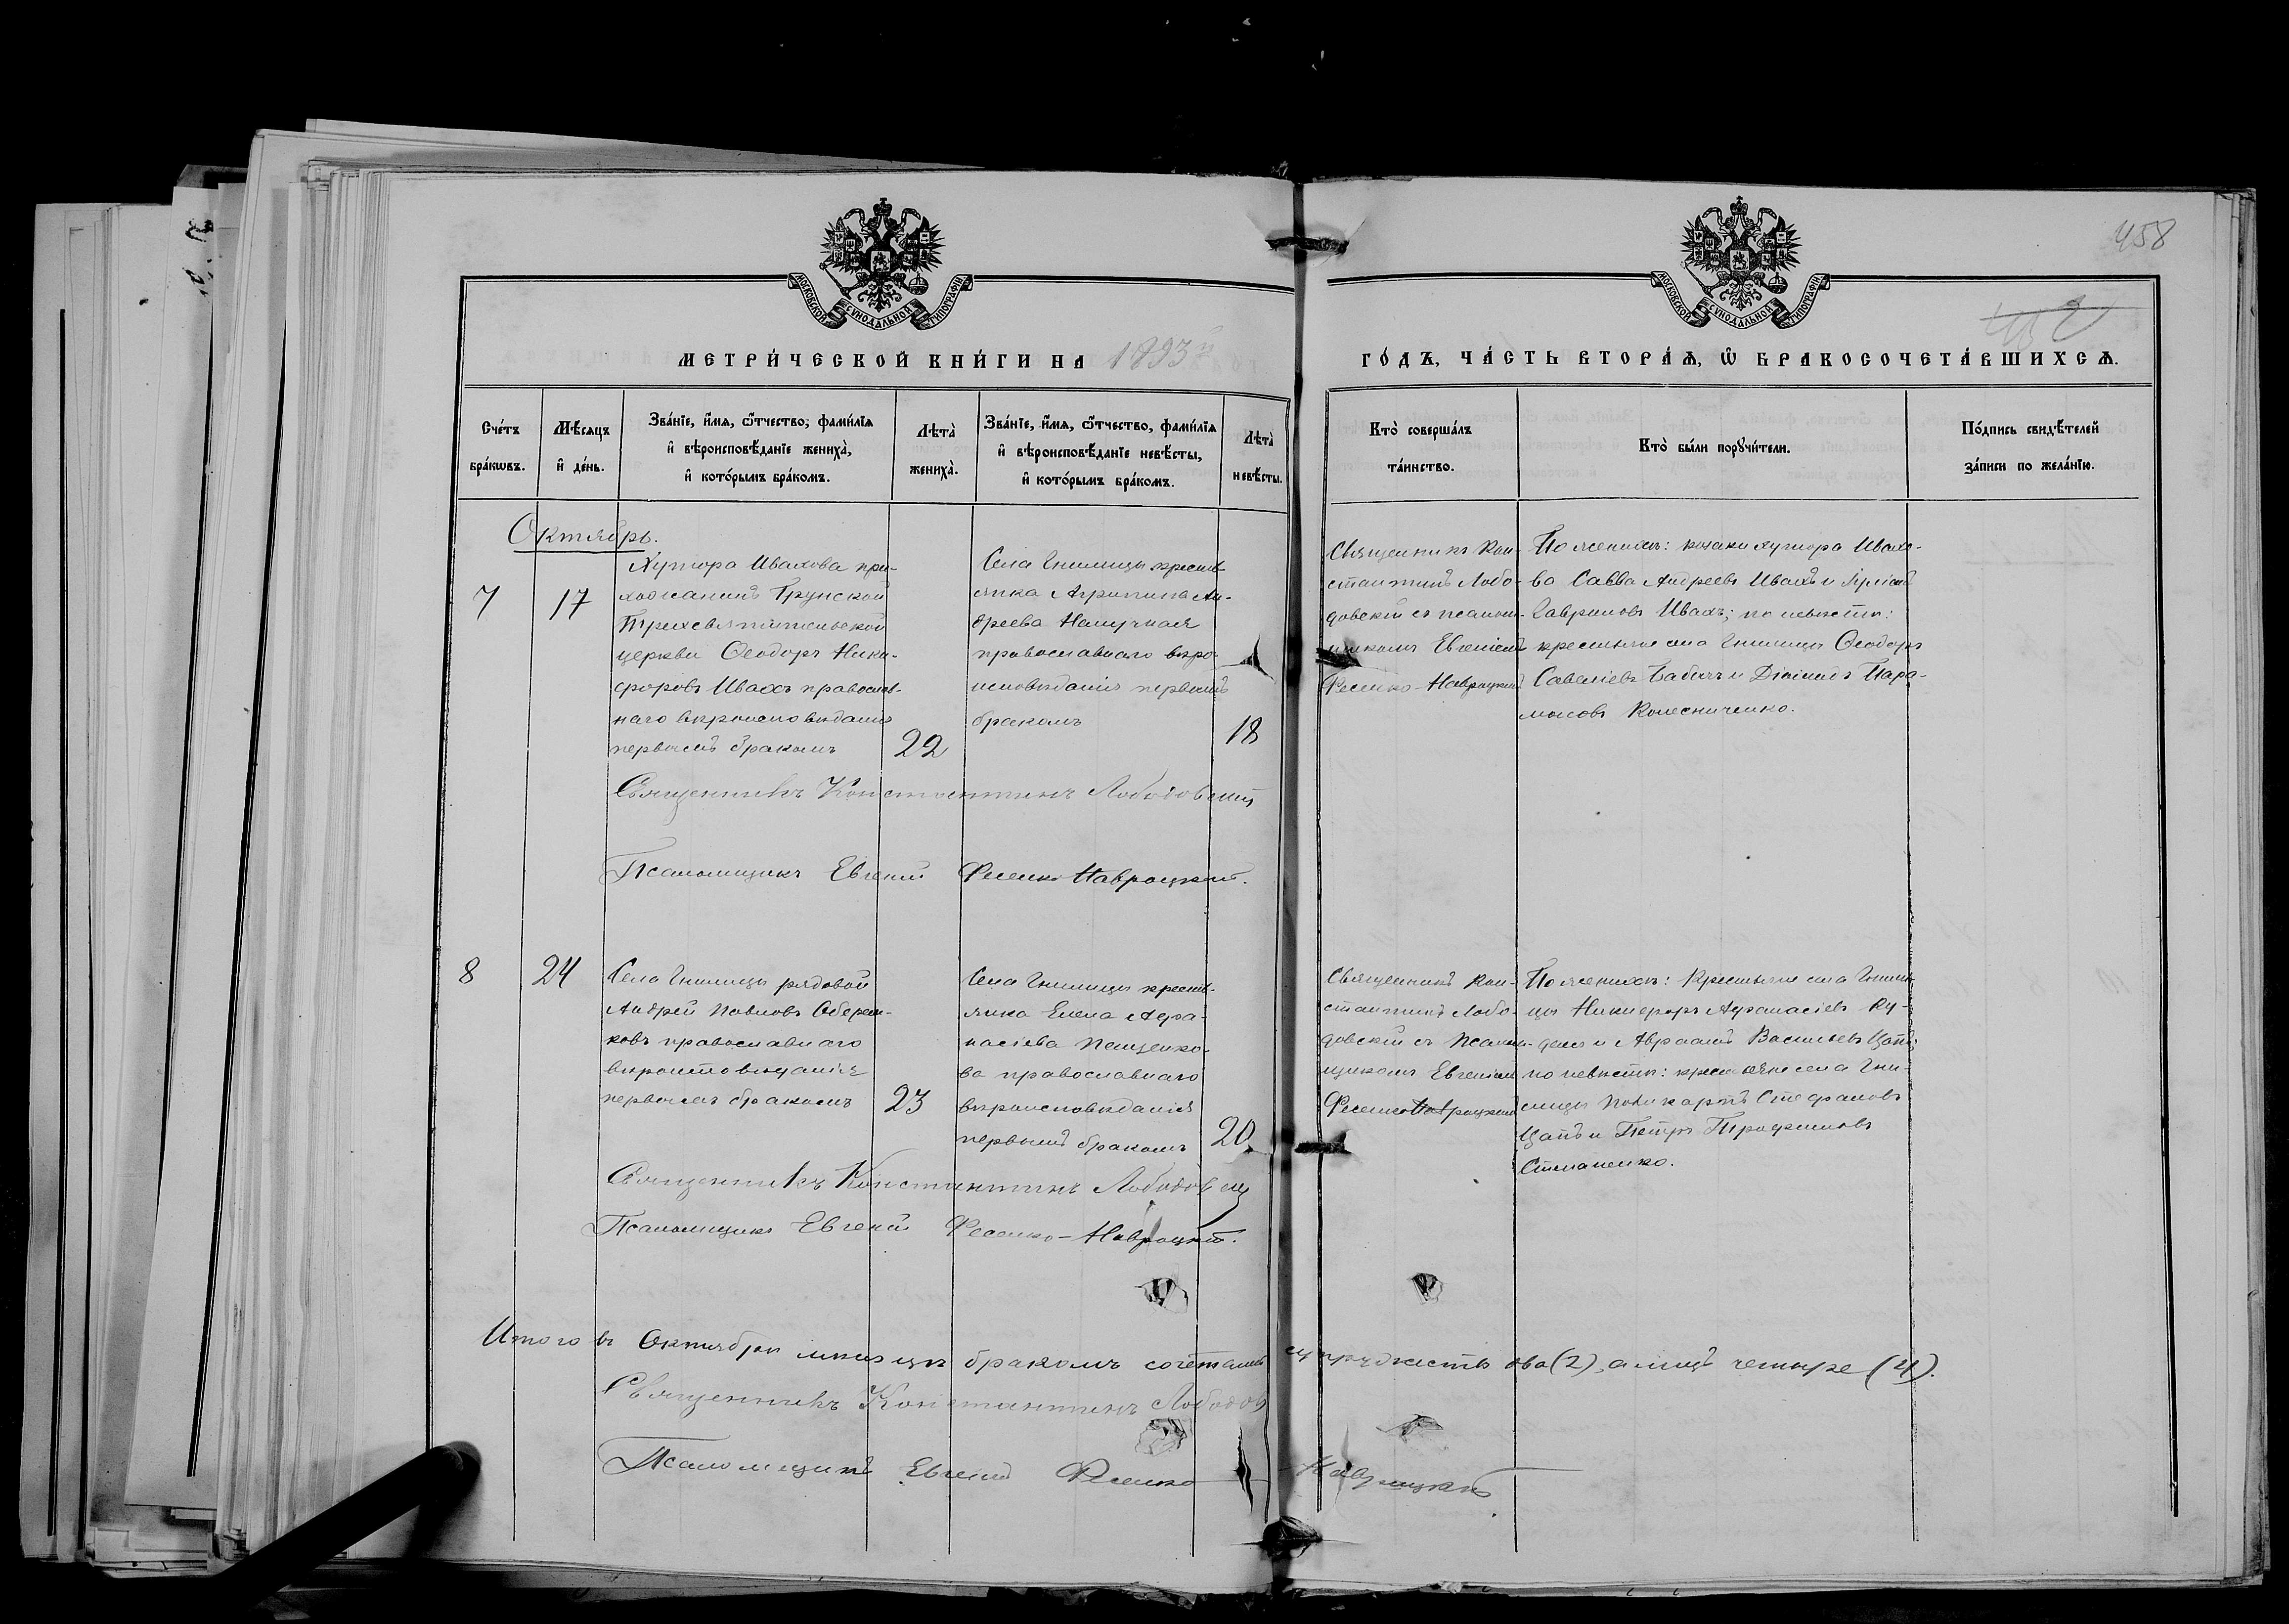 458
МОСКОВСКОЙ СУНОДАЛЬНОЙ ТИПОГРАФІИ
МОСКОВСКОЙ СУНОДАЛЬНОЙ ТИПОГРАФІИ
МЕТРИ́ЧЕСКОЙ КНИ́ГИ НА 1893 й
ГО́ДЪ, ЧА́СТЬ ВТОРА́Ѧ, Ѽ БРАКОСОЧЕТА́ВШИХСѦ.
Сче́тъ бра́кѡвъ.
Мѣ́сяцъ и҆ де́нь.
Зва́нїе, и҆́мѧ, ѻ҆́тчество, фами́лїѧ и҆ вѣроисповѣ́данїе жениха̀, и҆ кото́рымъ бра́комъ.
Лѣта̀ жениха̀.
Зва́нїе, и҆́мѧ, ѻ҆́тчество, фами́лїѧ и҆ вѣроисповѣ́данїе невѣ́сты, и҆ кото́рымъ бра́комъ.
Лѣта̀ невѣ́сты.
Кто̀ соверша́лъ та́инство.
Кто̀ бы́ли порꙋчи́тели.
По́дпись свидѣ́телей за́писи по жела́нїю.
Октябрь.
7
17
Хутора Ивахова при-
хожанинъ Трунской
Трехсвятительской
церкви Ѳеодоръ Ники-
форовъ Ивахъ православ-
наго вѣроисповѣданія
первымъ бракомъ
22
Села Гнилицы кресть-
янка Агрипина Ан-
дреева
православнаго вѣро-
исповѣданія первымъ
бракомъ
18
Священникъ Кон-
стантинъ Лобо-
довскій съ псалом-
щикомъ Евгеніемъ
Фесенко-Навроцкимъ
По женихѣ: козаки хутора Ивахо-
ва Савва Андреевъ Ивахъ и
Гавриловъ Ивахъ; по невѣстѣ:
крестьяне села Гнилицы Ѳеодоръ
Савеліевъ Бабичъ и Діомидъ Пара-
моновъ Колесниченко.
Священникъ Константинъ Лободовскій
Псаломщикъ Евгеній Фесенко-Навроцкій.
8
24
Села Гнилицы рядовой
Андрей Павловъ Оберем-
ковъ православнаго
вѣроисповѣданія
первымъ бракомъ
23
Села Гнилицы кресть-
янка Елена Афа-
насіева Пещенко-
ва православнаго
вѣроисповѣданія
первымъ бракомъ
20
Священникъ Кон-
стантинъ Лобо-
довскій съ псалом-
щикомъ Евгеніемъ
Фесенко-Навроцкимъ
По женихѣ: крестьяне села Гнили-
цы Никифоръ Афанасіевъ
и Авраамъ Васильевъ Цапъ;
по невѣстѣ: крестьяне села Гни-
лицы Поликарпъ Стефановъ
Цапъ и Петръ Трофимовъ
Степаненко.
Священникъ Константинъ Лободовскій
Псаломщикъ Евгеній Фесенко-Навроцкій.
Итого въ Октябрѣ мѣсяцѣ бракомъ сочетались супружествъ два (2), а лицъ четыре (4).
Священникъ Константинъ Лободов
Псаломщикъ Евгеній Фесенко-Навроцкій